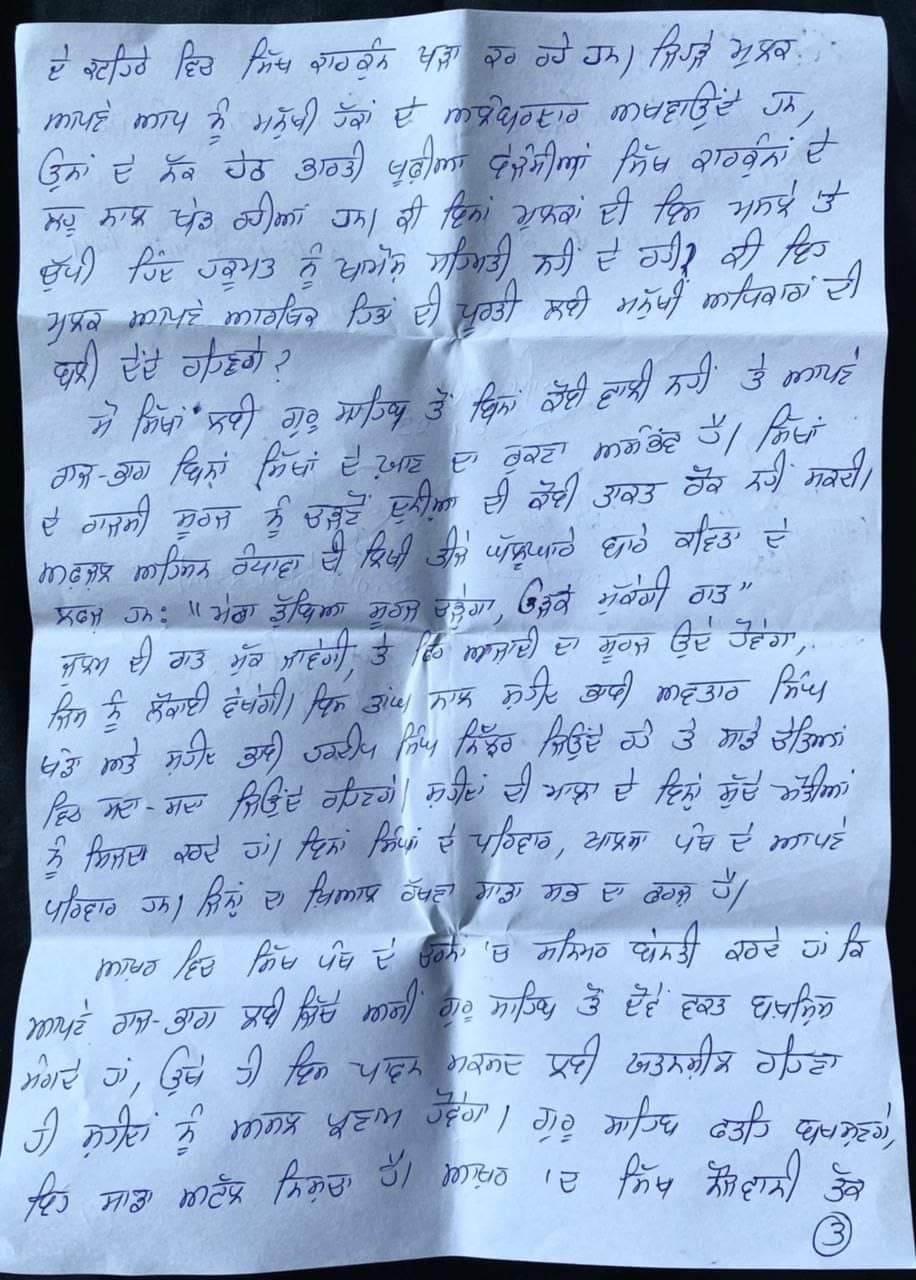 ਦੇ ਕਟਹਿਰੇ ਵਿਚ ਸਿੱਖ ਕਾਰਕੁੰਨ ਖੜਾ ਕਰ ਰਹੇ ਹਨ। ਜਿਹੜੇ ਮੁਲਕ
ਆਪਣੇ ਆਪ ਨੂੰ ਮਨੁੱਖੀ ਹੱਕਾਂ ਦੇ ਅਲੰਬਰਦਾਰ ਅਖਵਾਉਂਦੇ ਹਨ,
ਉਨਾਂ ਦੇ ਨੱਕ ਹੇਠ ਭਾਰਤੀ ਖੂਫੀਆ ਏਜੰਸੀਆਂ ਸਿੱਖ ਕਾਰਕੁੰਨਾਂ ਦੇ
ਲਹੂ ਨਾਲ ਖੇਡ ਰਹੀਆਂ ਹਨ। ਕੀ ਇਨਾਂ ਮੁਲਕਾਂ ਦੀ ਇਸ ਮਸਲੇ 'ਤੇ
ਚੁੱਪੀ ਹਿੰਦ ਹਕੂਮਤ ਨੂੰ ਖਾਮੋਸ਼ ਸਹਿਮਤੀ ਨਹੀਂ ਦੇ ਰਹੀ? ਕੀ ਇਹ
ਮੁਲਕ ਆਪਣੇ ਆਰਥਿਕ ਹਿਤਾਂ ਦੀ ਪੂਰਤੀ ਲਈ ਮਨੁੱਖੀ ਅਧਿਕਾਰਾਂ ਦੀ
ਬਲੀ ਦੇਂਦੇ ਰਹਿਣਗੇ?
ਸੋ ਸਿੱਖਾਂ ਲਈ ਗੁਰੂ ਸਾਹਿਬ ਤੋਂ ਬਿਨਾਂ ਕੋਈ ਵਾਲੀ ਨਹੀਂ ਤੇ ਆਪਣੇ
ਰਾਜ-ਭਾਗ ਬਿਨਾਂ ਸਿੱਖਾਂ ਦੇ ਘਾਣ ਦਾ ਰੁਕਣਾ ਅਸੰਭਵ ਹੈ। ਸਿੱਖਾਂ
ਦੇ ਰਾਜਸੀ ਸੂਰਜ ਨੂੰ ਚੜ੍ਹਣੋਂ ਦੁਨੀਆ ਦੀ ਕੋਈ ਤਾਕਤ ਰੋਕ ਨਹੀਂ ਸਕਦੀ।
ਅਫ਼ਜ਼ਲ ਅਹਿਸਨ ਰੰਧਾਵਾ ਦੀ ਲਿਖੀ ਤੀਜੇ ਘੱਲੂਘਾਰੇ ਬਾਰੇ ਕਵਿਤਾ ਦੇ
ਲਫਜ਼ ਹਨ: "ਮੇਰਾ ਡੁੱਬਿਆ ਸੂਰਜ ਚੜ੍ਹੇਗਾ, ਓੜਕ ਮੁੱਕੇਗੀ ਰਾਤ"
ਜ਼ੁਲਮ ਦੀ ਰਾਤ ਮੁੱਕ ਜਾਵੇਗੀ, ਤੇ ਫਿਰ ਆਜਾਦੀ ਦਾ ਸੂਰਜ ਉਦੇ ਹੋਵੇਗਾ,
ਜਿਸ ਨੂੰ ਲੋਕਾਈ ਵੇਖੇਗੀ। ਇਸ ਤਾਂਘ ਨਾਲ ਸ਼ਹੀਦ ਭਾਈ ਅਵਤਾਰ ਸਿੰਘ
ਖੰਡਾ ਅਤੇ ਸ਼ਹੀਦ ਭਾਈ ਹਰਦੀਪ ਸਿੰਘ ਨਿੱਝਰ ਜਿਉਂਦੇ ਰਹੇ ਤੇ ਸਾਡੇ ਚੇਤਿਆਂ
ਵਿਚ ਸਦਾ-ਸਦਾ ਜਿਉਂਦੇ ਰਹਿਣਗੇ। ਸ਼ਹੀਦਾਂ ਦੀ ਮਾਲਾ ਦੇ ਇਨ੍ਹਾਂ ਸੁੱਚੇ ਮੋਤੀਆਂ
ਨੂੰ ਸਿਜਦਾ ਕਰਦੇ ਹਾਂ। ਇਨਾਂ ਸਿੰਘਾਂ ਦੇ ਪਰਿਵਾਰ, ਖਾਲਸਾ ਪੰਥ ਦੇ ਆਪਣੇ
ਪਰਿਵਾਰ ਹਨ। ਜਿਨ੍ਹਾਂ ਦਾ ਖ਼ਿਆਲ ਰੱਖਣਾ ਸਾਡਾ ਸਭ ਦਾ ਫਰਜ਼ ਹੈ।
ਆਖ਼ਰ ਵਿਚ ਸਿੱਖ ਪੰਥ ਦੇ ਚਰਨਾਂ 'ਚ ਸਨਿਮਰ ਬੇਨਤੀ ਕਰਦੇ ਹਾਂ ਕਿ
ਆਪਣੇ ਰਾਜ-ਭਾਗ ਲਈ ਜਿੱਥੇ ਅਸੀਂ ਗੁਰੂ ਸਾਹਿਬ ਤੋਂ ਦੋਵੇਂ ਵਕਤ ਬਖਸ਼ਿਸ਼
ਮੰਗਦੇ ਹਾਂ, ਉਥੇ ਹੀ ਇਸ ਪਾਵਨ ਮਕਸਦ ਲਈ ਯਤਨਸ਼ੀਲ ਰਹਿਣਾ
ਹੀ ਸ਼ਹੀਦਾਂ ਨੂੰ ਅਸਲ ਪ੍ਰਣਾਮ ਹੋਵੇਗਾ। ਗੁਰੂ ਸਾਹਿਬ ਫਤਹਿ ਬਖਸ਼ਣਗੇ,
ਇਹ ਸਾਡਾ ਅਟੱਲ ਨਿਸ਼ਚਾ ਹੈ। ਆਖ਼ਰ 'ਚ ਸਿੱਖ ਨੌਜਵਾਨੀ ਤੱਕ
੩